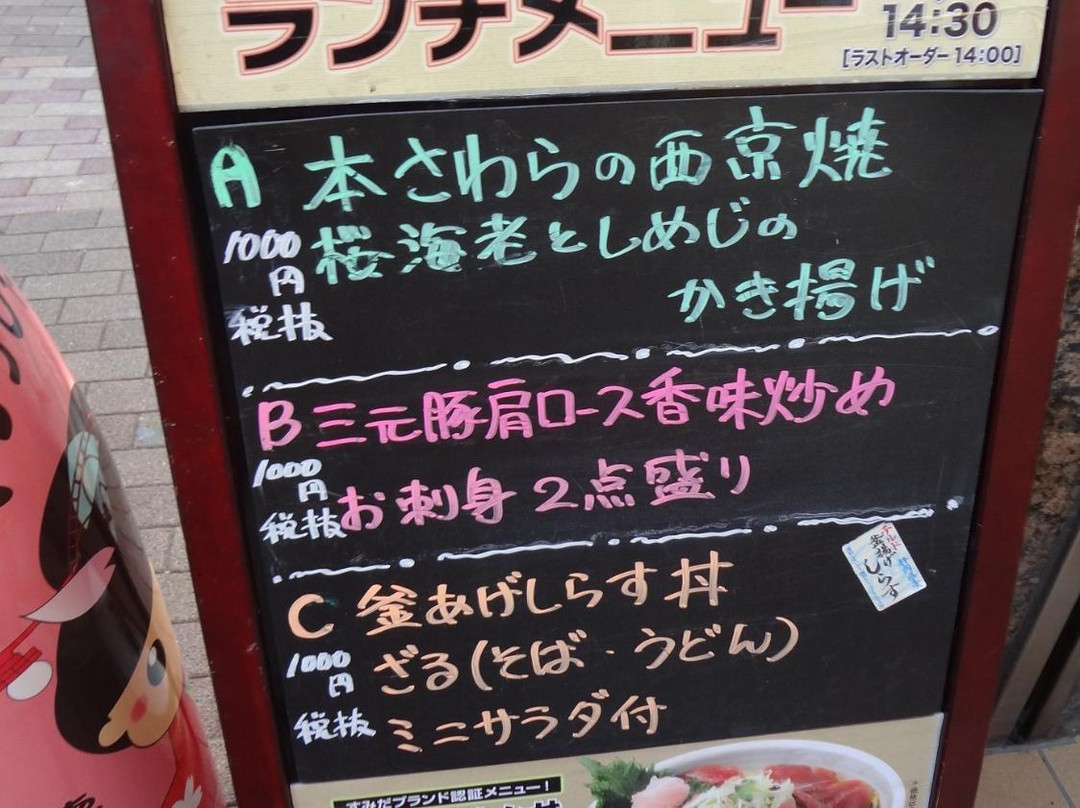 ランチメニュー
14:30
[ラストオーダー14:00]
A 本さわらの西京焼
1000円
税抜
桜海老としめじの
かき揚げ
B 三元豚肩ロース香味炒め
1000円
税抜
お刺身2点盛り
釜揚げ
しらす
C 釜あげしらす丼
1000円
税抜
ざる(そば・うどん)
ミニサラダ付
すみだブランド認証メニュー!